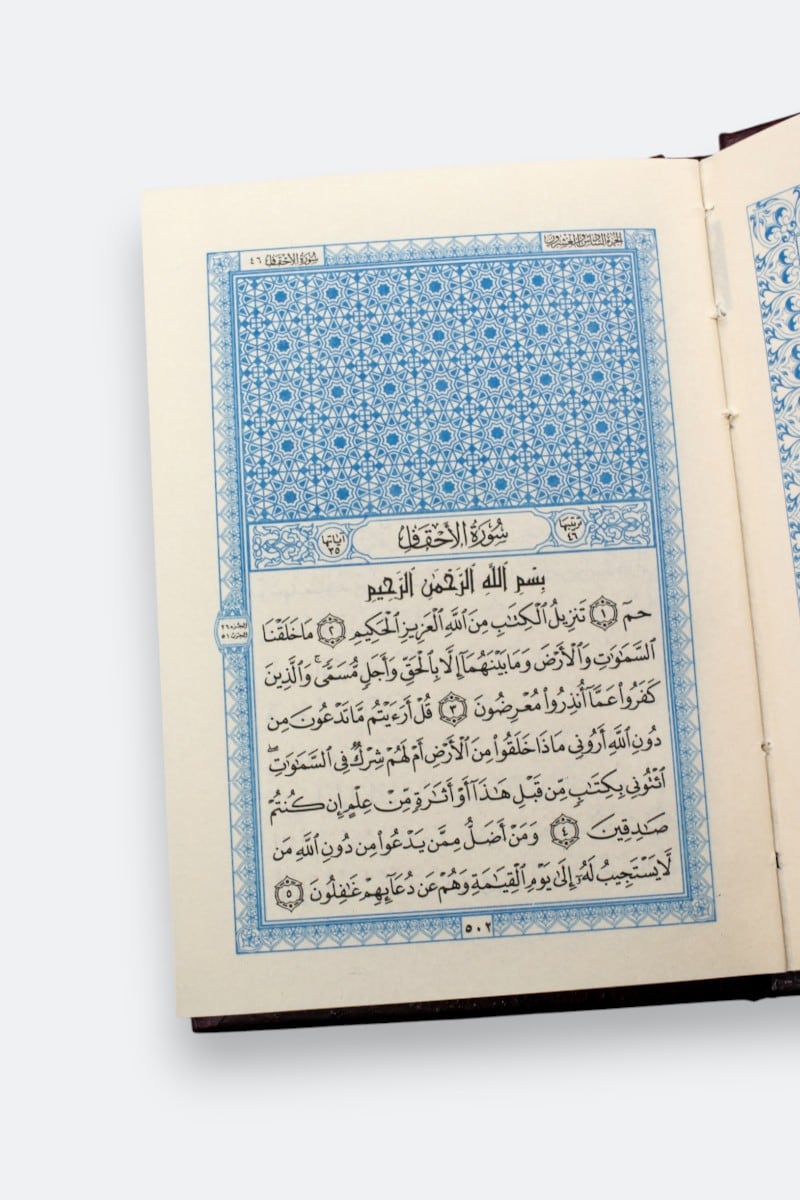 الجزء السادس والعشرون
سُورَةُ الأحْقَافِ ٤٦
ترتيبها
٤٦
سُورَةُ الأَحْقَافِ
آياتها
٣٥
بِسْمِ ٱللَّهِ ٱلرَّحْمَٰنِ ٱلرَّحِيمِ
حمٓ ١ تَنزِيلُ ٱلْكِتَٰبِ مِنَ ٱللَّهِ ٱلْعَزِيزِ ٱلْحَكِيمِ ٢ مَا خَلَقْنَا
ٱلسَّمَٰوَٰتِ وَٱلْأَرْضَ وَمَا بَيْنَهُمَآ إِلَّا بِٱلْحَقِّ وَأَجَلٍ مُّسَمًّى ۚ وَٱلَّذِينَ
كَفَرُوا۟ عَمَّآ أُنذِرُوا۟ مُعْرِضُونَ ٣ قُلْ أَرَءَيْتُم مَّا تَدْعُونَ مِن
دُونِ ٱللَّهِ أَرُونِى مَاذَا خَلَقُوا۟ مِنَ ٱلْأَرْضِ أَمْ لَهُمْ شِرْكٌ فِى ٱلسَّمَٰوَٰتِ ۖ
ٱئْتُونِى بِكِتَٰبٍ مِّن قَبْلِ هَٰذَآ أَوْ أَثَٰرَةٍ مِّنْ عِلْمٍ إِن كُنتُمْ
صَٰدِقِينَ ٤ وَمَنْ أَضَلُّ مِمَّن يَدْعُوا۟ مِن دُونِ ٱللَّهِ مَن
لَّا يَسْتَجِيبُ لَهُۥٓ إِلَىٰ يَوْمِ ٱلْقِيَٰمَةِ وَهُمْ عَن دُعَآئِهِمْ غَٰفِلُونَ ٥
الجزء ٢٦
الحزب ٥١
٥٠٢